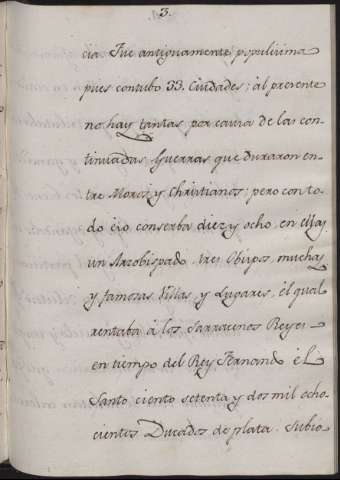 3.
cia. Fue antiguamente populisima
pues contubo 33. Ciudades; al presente
no hay tantas por causa de las con-
tinuadas Guerras que duraron en-
tre Moros, y Christianos; pero con to-
do eso conserba diez y ocho, en ellas
un Arzobispado, tres Obispos, muchas
y famosas Villas, y Lugares, el qual
rentaba à los Sarracenos Reyes
en tiempo del Rey Fernando el
Santo ciento setenta y dos mil echo-
cientos Ducados de plata. Subio